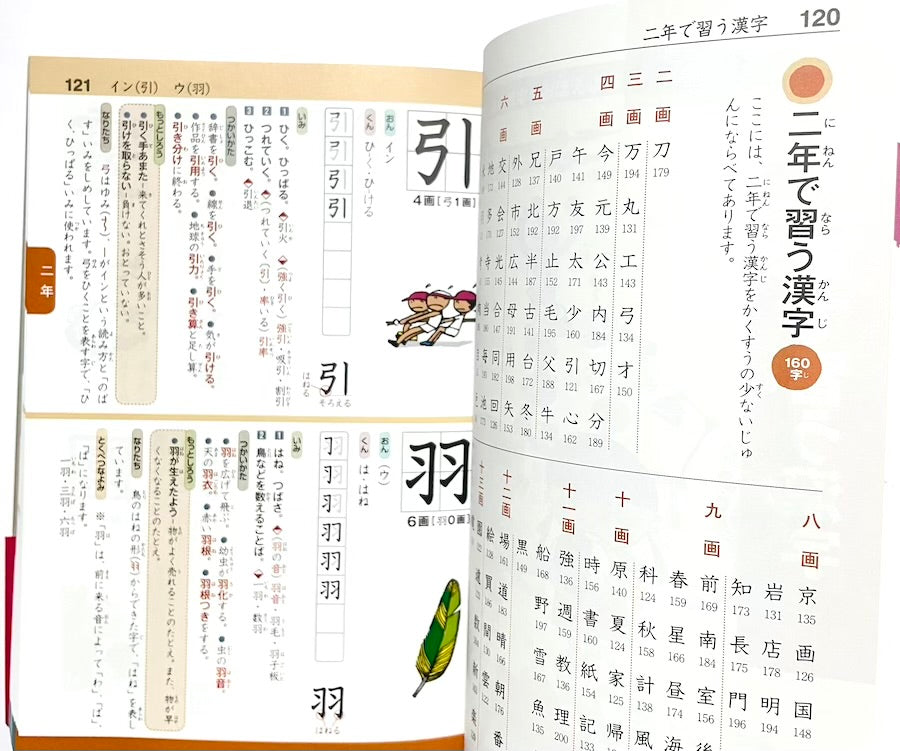 二年で習う漢字 120
二年で習う漢字
にねん なら かんじ
160字
ここには、二年で習う漢字をかくすうの少ないじゅ
んにならべてあります。
二画
刀 179
三画
万 194
丸 131
工 143
弓 134
才 150
四画
今 144
元 139
公 143
内 184
切 167
分 189
午 141
友 197
太 171
少 160
引 121
心 162
戸 140
方 192
止 152
毛 195
父 188
牛 134
五画
兄 137
北 192
半 187
古 141
台 172
冬 180
外 128
市 152
広 144
母 191
用 198
矢 153
六画
交
会
光
合
同
回 126
八画
京 135
画 126
国 148
岩 131
店 178
明 194
知 173
長 175
門 196
九画
前 169
南 184
室 156
春 159
星 166
昼 174
科 124
秋 158
計 138
風
十画
原 140
夏 124
家 125
帰
時 156
書 160
紙 154
記 133
十一画
強 136
週 159
教 136
理 200
船 168
野 197
雪 167
魚 135
黒 149
十二画
場 161
道 183
晴 166
朝 176
番
絵 128
買 186
間 130
雲 122
十三画
園
遠
数
新
楽
121 イン(引) ウ(羽)
二年
引
4画[弓1画]
おん イン
くん ひく・ひける
引 はねる そろえる
いみ
1 ひく。ひっぱる。◆引火 ◆(強く引く)強引・吸引・割引
2 つれていく。◆(つれていく(引)・率いる)引率
3 ひっこむ。◆引退
つかいかた
●辞書を引く。●線を引く。●手を引く。●気が引ける。
●作品を引用する。●地球の引力。●引き算と足し算。
●引き分けに終わる。
もっとしろう
●引く手あまた―来てくれとさそう人が多いこと。
●引けを取らない―負けない。おとっていない。
なりたち 弓はゆみ
羽
6画[羽0画]
おん (ウ)
くん は・はね
羽 はねる
いみ
1 はね。つばさ。◆(羽の音)羽音・羽毛・羽子板
2 鳥などを数えることば。◆一羽・数羽
つかいかた
●羽を広げて飛ぶ。●幼虫が羽化する。●虫の羽音。
●天の羽衣。●赤い羽根。●羽根つきをする。
もっとしろう
●羽が生えたよう―物がよく売れることのたとえ。また、物が早
くなくなることのたとえ。
なりたち 鳥のはねの形(羽)からできた字で、「はね」を表し
ています。
とくべつなよみ ※「羽」は、前に来る音によって「わ」、「ば」、
「ぱ」になります。
一羽・三羽・六羽